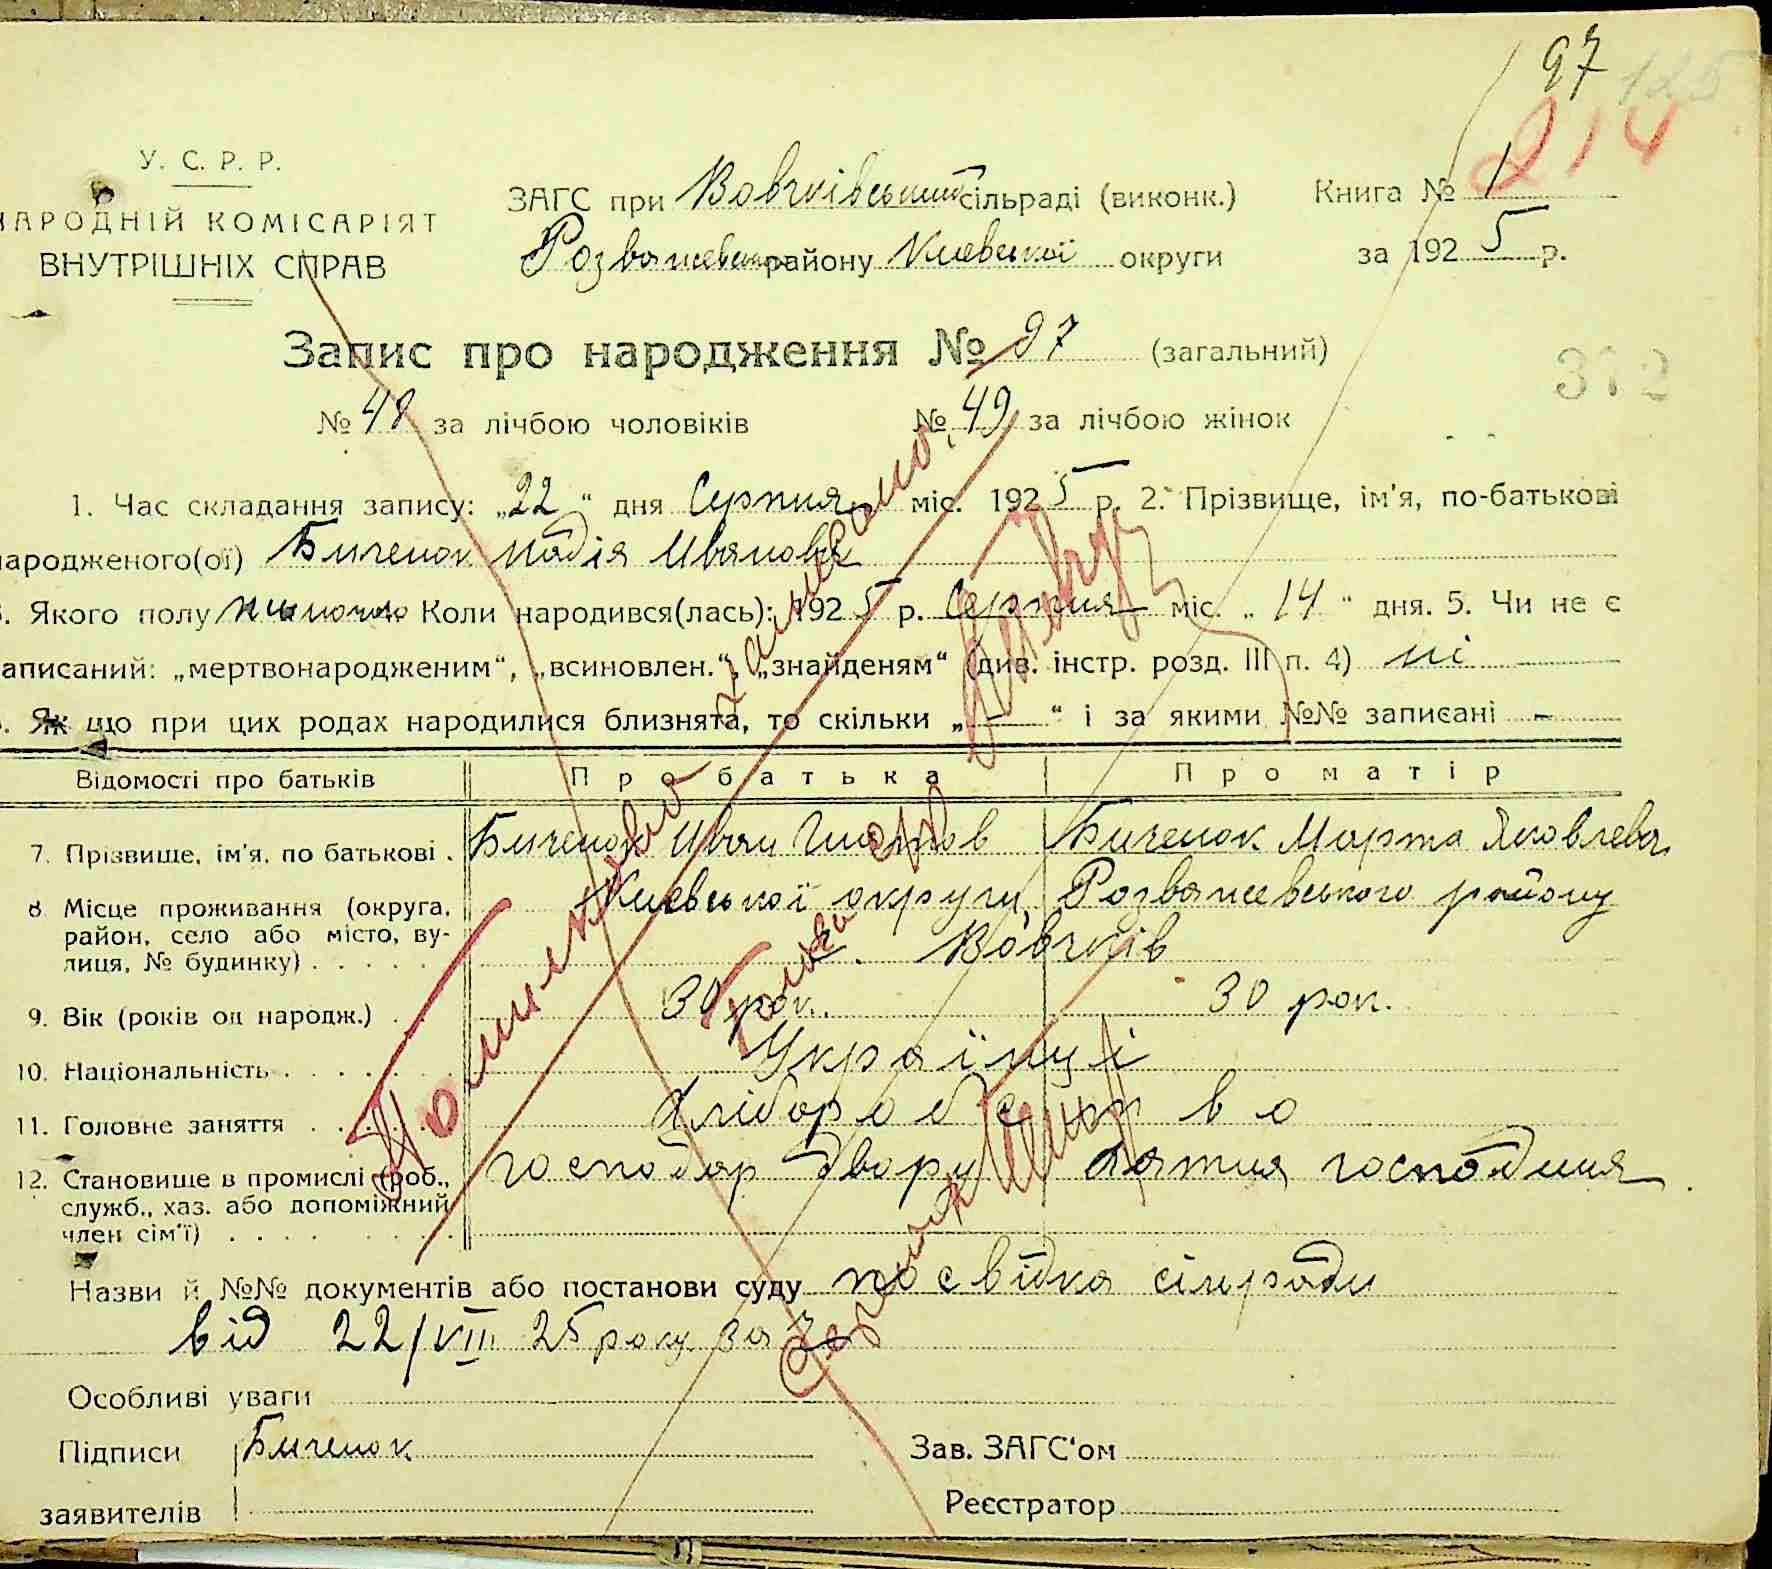 97 125
214
У. С. Р. Р.
НАРОДНІЙ КОМІСАРІЯТ
ВНУТРІШНІХ СПРАВ
ЗАГС при Вовчківський сільраді (виконк.) Книга № 1
Розважевськ району Киевської округи за 1925 р.
Запис про народження № 97 (загальний)
372
№ 48 за лічбою чоловіків № 49 за лічбою жінок
1. Час складання запису: „22“ дня Серпня міс. 1925 р. 2. Прізвище, ім'я, по-батькові
народженого(ої) Биченок Надія Иванова
3. Якого полу жиночого Коли народився(лась): 1925 р. Серпня міс. „14“ дня. 5. Чи не є
записаний: „мертвонародженим“, „всиновлен.“, „знайденям“ (див. інстр. розд. III п. 4) ні
6. Як що при цих родах народилися близнята, то скільки „—“ і за якими №№ записані —
Відомості про батьків Про батька Про матір
7. Прізвище, ім'я, по батькові . Биченок Иван Биченок Марта Яковлева
8 Місце проживання (округа, район, село або місто, вулиця, № будинку) . . . . . Киевської округи, Розважевського району
с. Вовчків
9. Вік (років од народж.) . . . 30 рок. 30 рок.
10. Національність . . . . . . . Українці
11. Головне заняття . . . . . . Хліборобство
12. Становище в промислі (роб., служб., хаз. або допоміжний член сім'ї) . . . . . . . . господар двору господиня
Назви й №№ документів або постанови суду посвідка сільради
від 22/VIII 25 року за №
Особливі уваги
Підписи Биченок Зав. ЗАГС'ом
заявителів Реєстратор
Помилково записано
Голова
Секретар